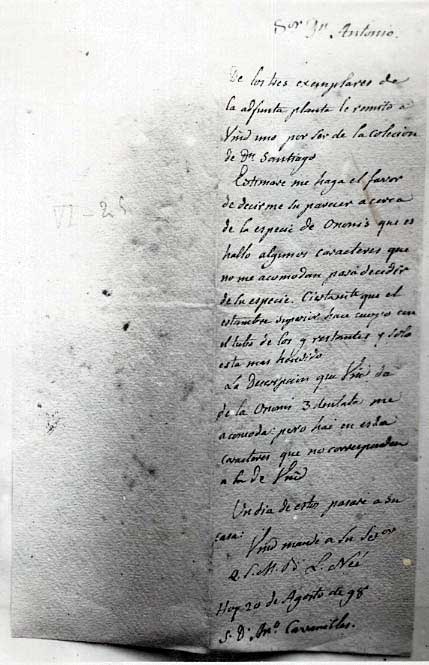 Sor Dn Antonio.
De los tres exemplares de
la adjunta planta le remito a
Vmd uno por ser de la coleccion
de Dn Santiago
Estimare me haga el favor
de decirme su parecer acerca
de la especie de Ononis que es
hallo algunos caracteres que
no me acomodan para decidir
de la especie. Cierto que el
estambre superior hace cuerpo con
el tubo de los 9 restantes y solo
esta mas hendido
La Descripcion que Vmd da
de la Ononis 3dentata me
acomoda: pero hai en esta
caracteres que no corresponden
a la de Vmd
Un dia de estos pasare a su
casa:
Vmd mande a su Segor
Q.S.M.B. L. Neé
Hoy 20 de Agosto de 98
S. D. Anto. Cavanilles.
VI-25